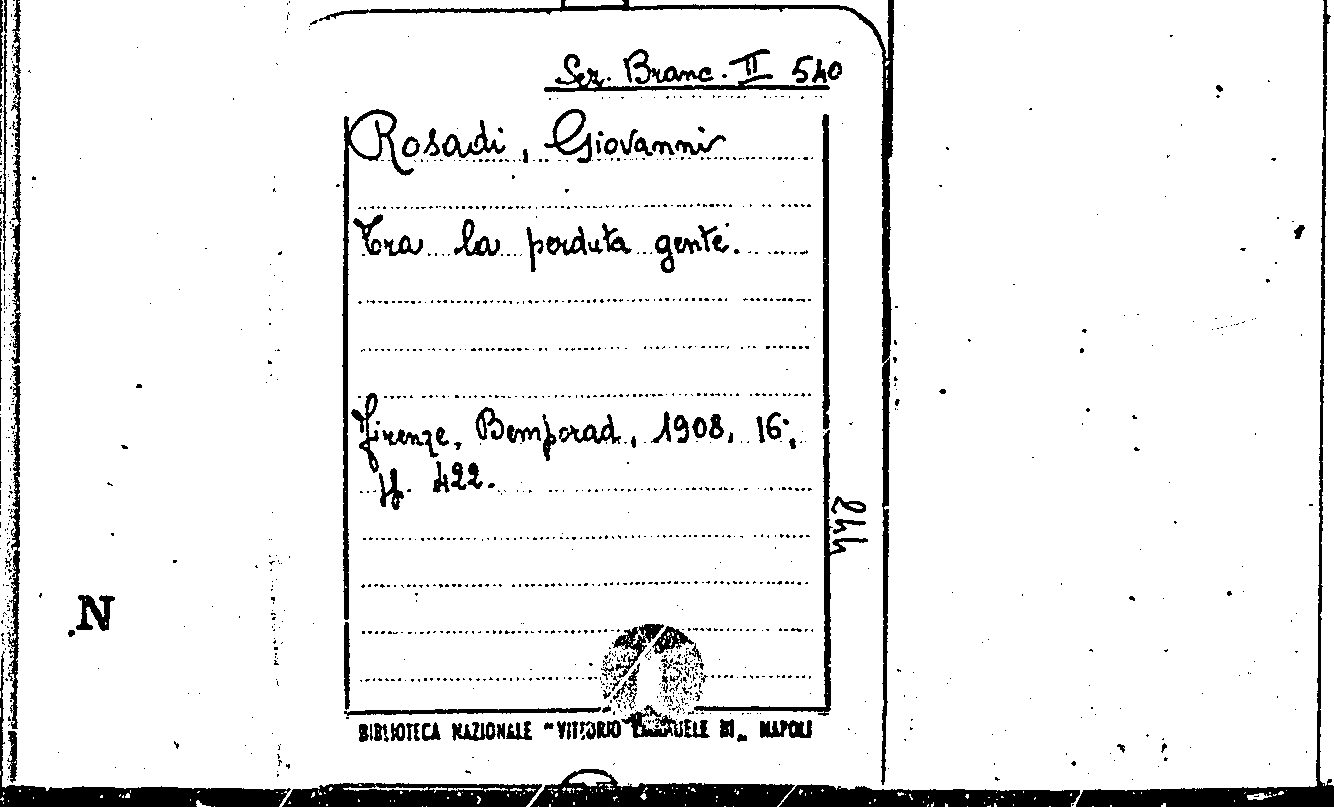 Sez. Branc. II 540
Rosadi, Giovanni
Tra la perduta gente.
Firenze, Bemporad, 1908, 16°,
pp. 422.
244
.N
BIBLIOTECA NAZIONALE "VITTORIO EMANUELE III" NAPOLI